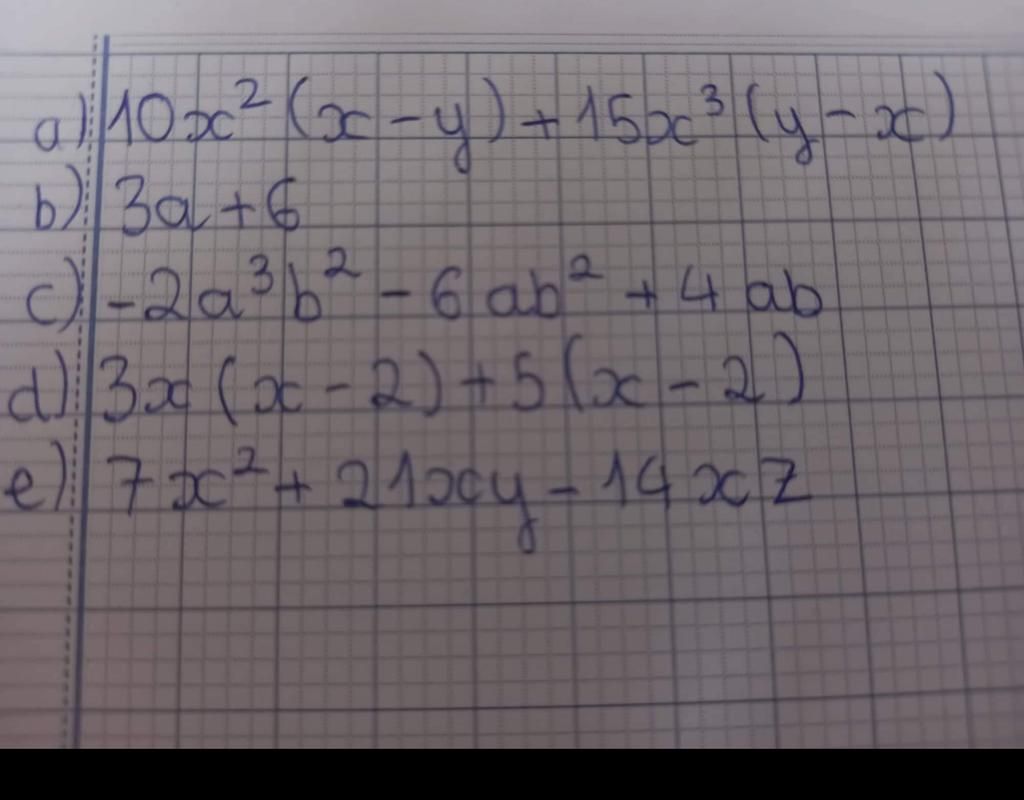 a) 10x²(x-y)+15x³(y-x)
b) 3a+6
c) -2a³b²-6ab²+4ab
d) 3x(x-2)+5(x-2)
e) 7x²+21xy-14xz